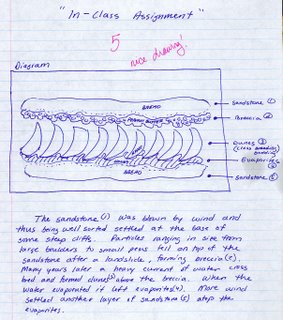 "In-Class Assignment"
5
nice drawing!
Diagram
BREAD
Sandstone ①
PEANUT BUTTER
Breccia ②
Dunes ③
(cross bedding)
Evaporites ④
BREAD
Sandstone ⑤
The sandstone(1) was blown by wind and
thus being well sorted settled at the base of
some steep cliffs. Particles ranging in size from
large boulders to small peas fell on top of the
sandstone after a landslide, forming breccia(2).
Many years later a heavy current of water cross
bed and formed dunes(3) above the breccia. When the
water evaporated it left evaporites(4). More wind
settled another layer of sandstone(5) atop the
evaporites.